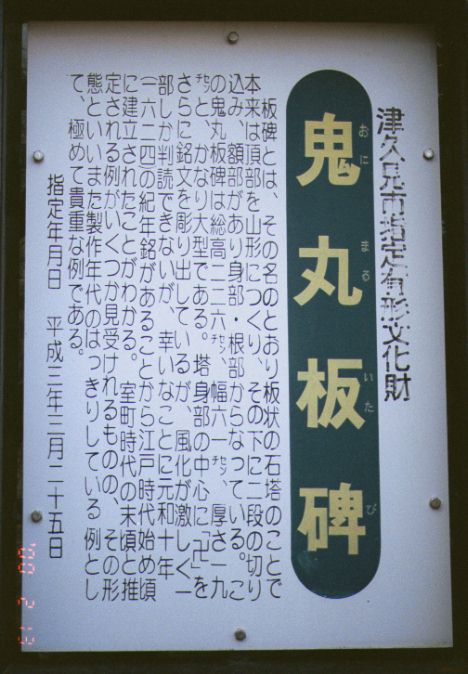 津久見市指定有形文化財
鬼丸板碑
おに まる いた び
板碑とは、その名のとおり板状の石塔のことで
本来は頂部を山形につくり、その下に二段の切り
込み、額部があり身部・根部からなっている。こ
の鬼丸板碑は総高二二六㌢、幅六一㌢、厚さ一九
㌢と、かなり大型である。塔身部の中心に「卍」を
さらに銘文を彫り出しているが、風化が激しく一
部しか判読できないが、幸いなことに元和十年
(一六二四)の紀年銘があることから江戸時代始め頃
に建立されたことがわかる。室町時代の末頃と推
定される例がいくつか見受けれるものの、その形
態といいまた製作年代のはっきりしている例とし
て、極めて貴重な例である。
指定年月日 平成三年三月二十五日
'00 2 13